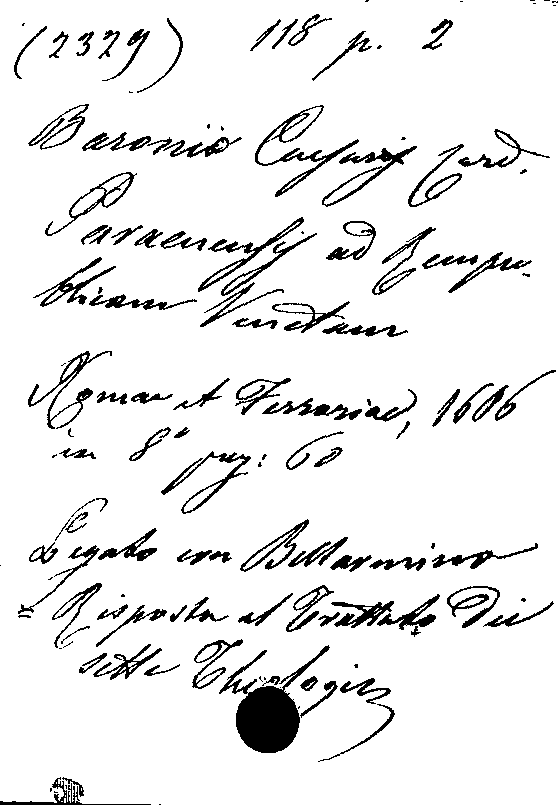 (2329) 118 p. 2
Baronio Caesaris Card.
Paraenensis ad Rempu-
blicam Venetam
Romae et Ferrariae, 1606
in 8° pag: 60
Legato con Bellarmino
= Risposta al Trattato dei
sette Theologi